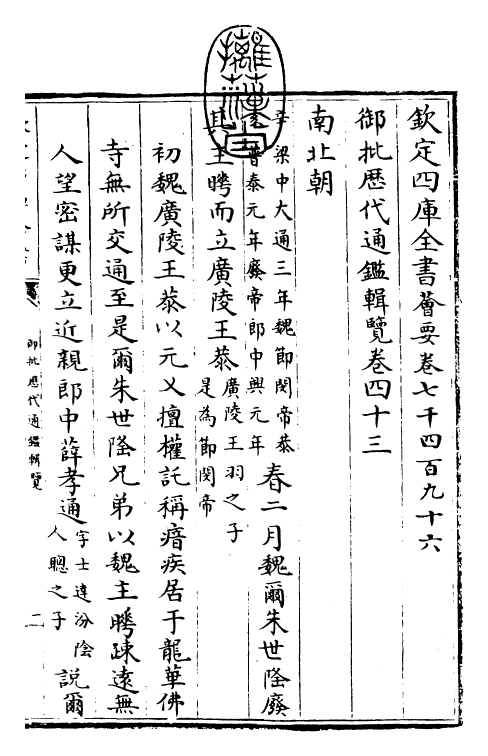 欽定四庫全書薈要卷七千四百九十六
御批歴代通鑑輯覽卷四十三
南北朝
辛 梁中大通三年魏節閔帝恭
普泰元年廢帝郎中興元年
春二月魏爾朱世隆廢
其主曄而立廣陵王恭
廣陵王羽之子
是為節閔帝
初魏廣陵王恭以元乂擅權託稱瘖疾居于龍華佛
寺無所交通至是爾朱世隆兄弟以魏主曄疎遠無
人望密謀更立近親郎中薛孝通
字士達汾陰
人聰之子
說爾
御批歴代通鑑輯覽
二